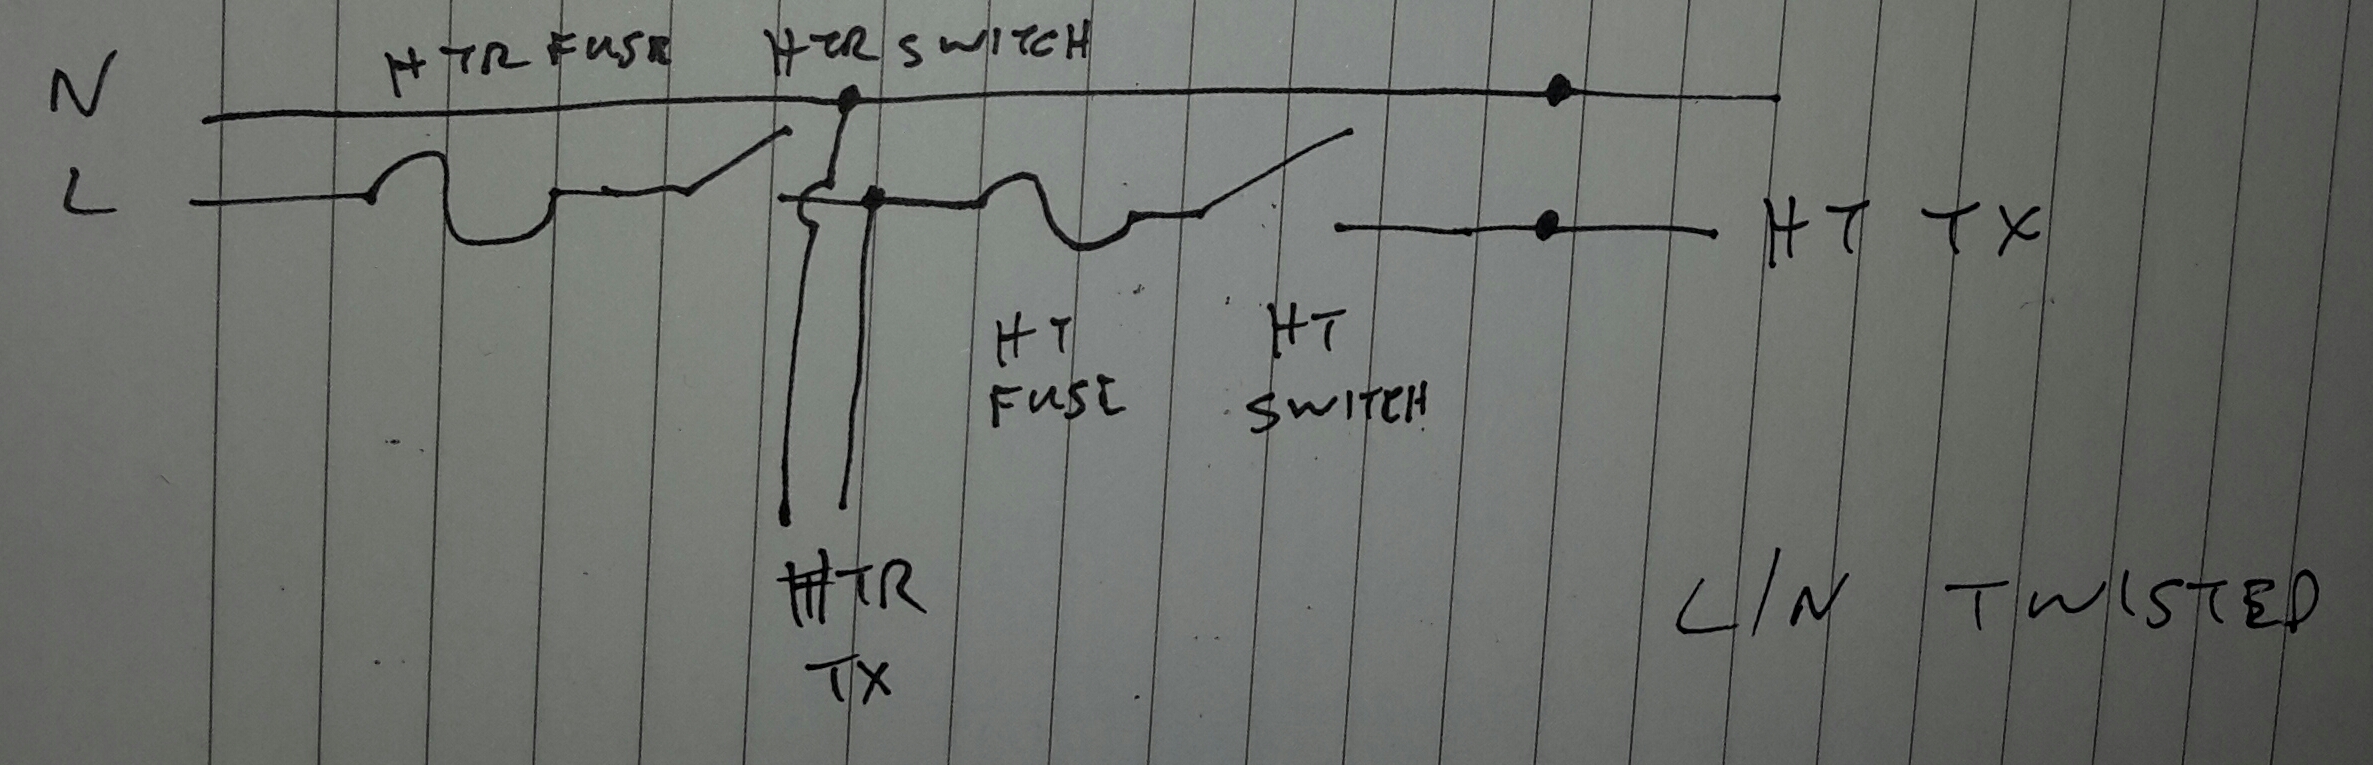 N
HTR FUSE HTR SWITCH
L
HT TX
HT
FUSE
HT
SWITCH
HTR
TX
L/N TWISTED